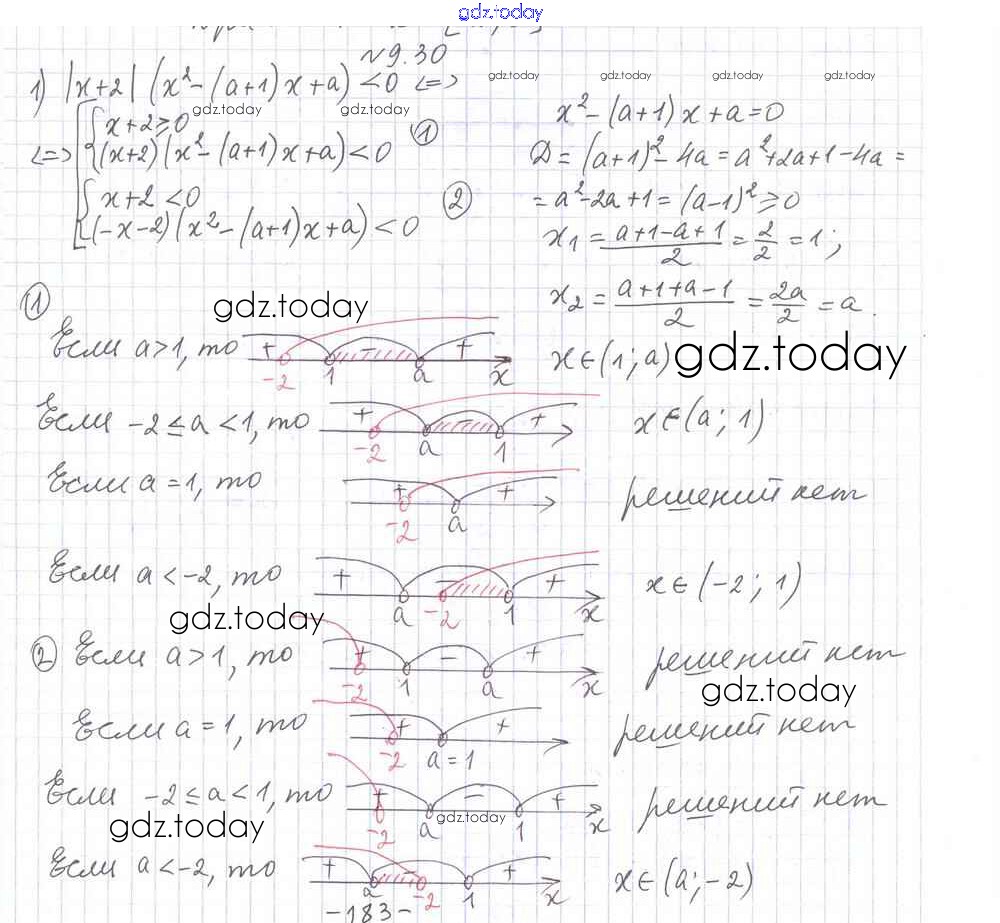 gdz.today
№9.30
1) |x+2| (x²-(a+1)x+a) <0 <=>
gdz.today gdz.today gdz.today gdz.today
gdz.today gdz.today
<=> [ { x+2≥0
(x+2)(x²-(a+1)x+a)<0 ①
{ x+2<0
(-x-2)(x²-(a+1)x+a)<0 ②
x²-(a+1)x+a=0
Д=(a+1)²-4a=a²+2a+1-4a=
=a²-2a+1=(a-1)²≥0
x₁=(a+1-a+1)/2=2/2=1;
x₂=(a+1+a-1)/2=2a/2=a.
① gdz.today
Если a>1, то + -2 1 - a + x x∈(1;a) gdz.today
Если -2≤a<1, то + -2 a - 1 + x∈(a;1)
Если a=1, то + -2 a + решений нет
Если a<-2, то + a - -2 1 + x x∈(-2;1)
gdz.today
② Если a>1, то + -2 1 - a + x решений нет
gdz.today
Если a=1, то + -2 a=1 + решений нет
Если -2≤a<1, то + -2 a - 1 + x решений нет
gdz.today gdz.today
Если a<-2, то + a - -2 1 + x x∈(a;-2)
-183-